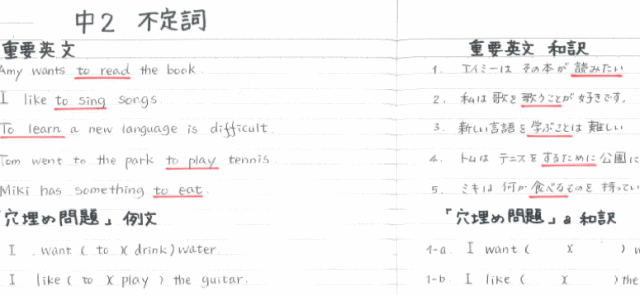 中2 不定詞
重要英文
Amy wants to read the book
I like to sing songs
To learn a new language is difficult.
Tom went to the park to play tennis.
Miki has something to eat.
「穴埋め問題」例文
I want ( to X drink) water.
I like ( to X play ) the guitar.
重要英文 和訳
1. エイミーは その本が 読みたい
2. 私は 歌を 歌うことが 好きです。
3. 新しい言語を 学ぶことは 難しい
4. トムは テニスを するために 公園に
5. ミキは 何か 食べるものを 持ってい
「穴埋め問題」& 和訳
1-a. I want ( X ) w
1-b. I like ( X ) the